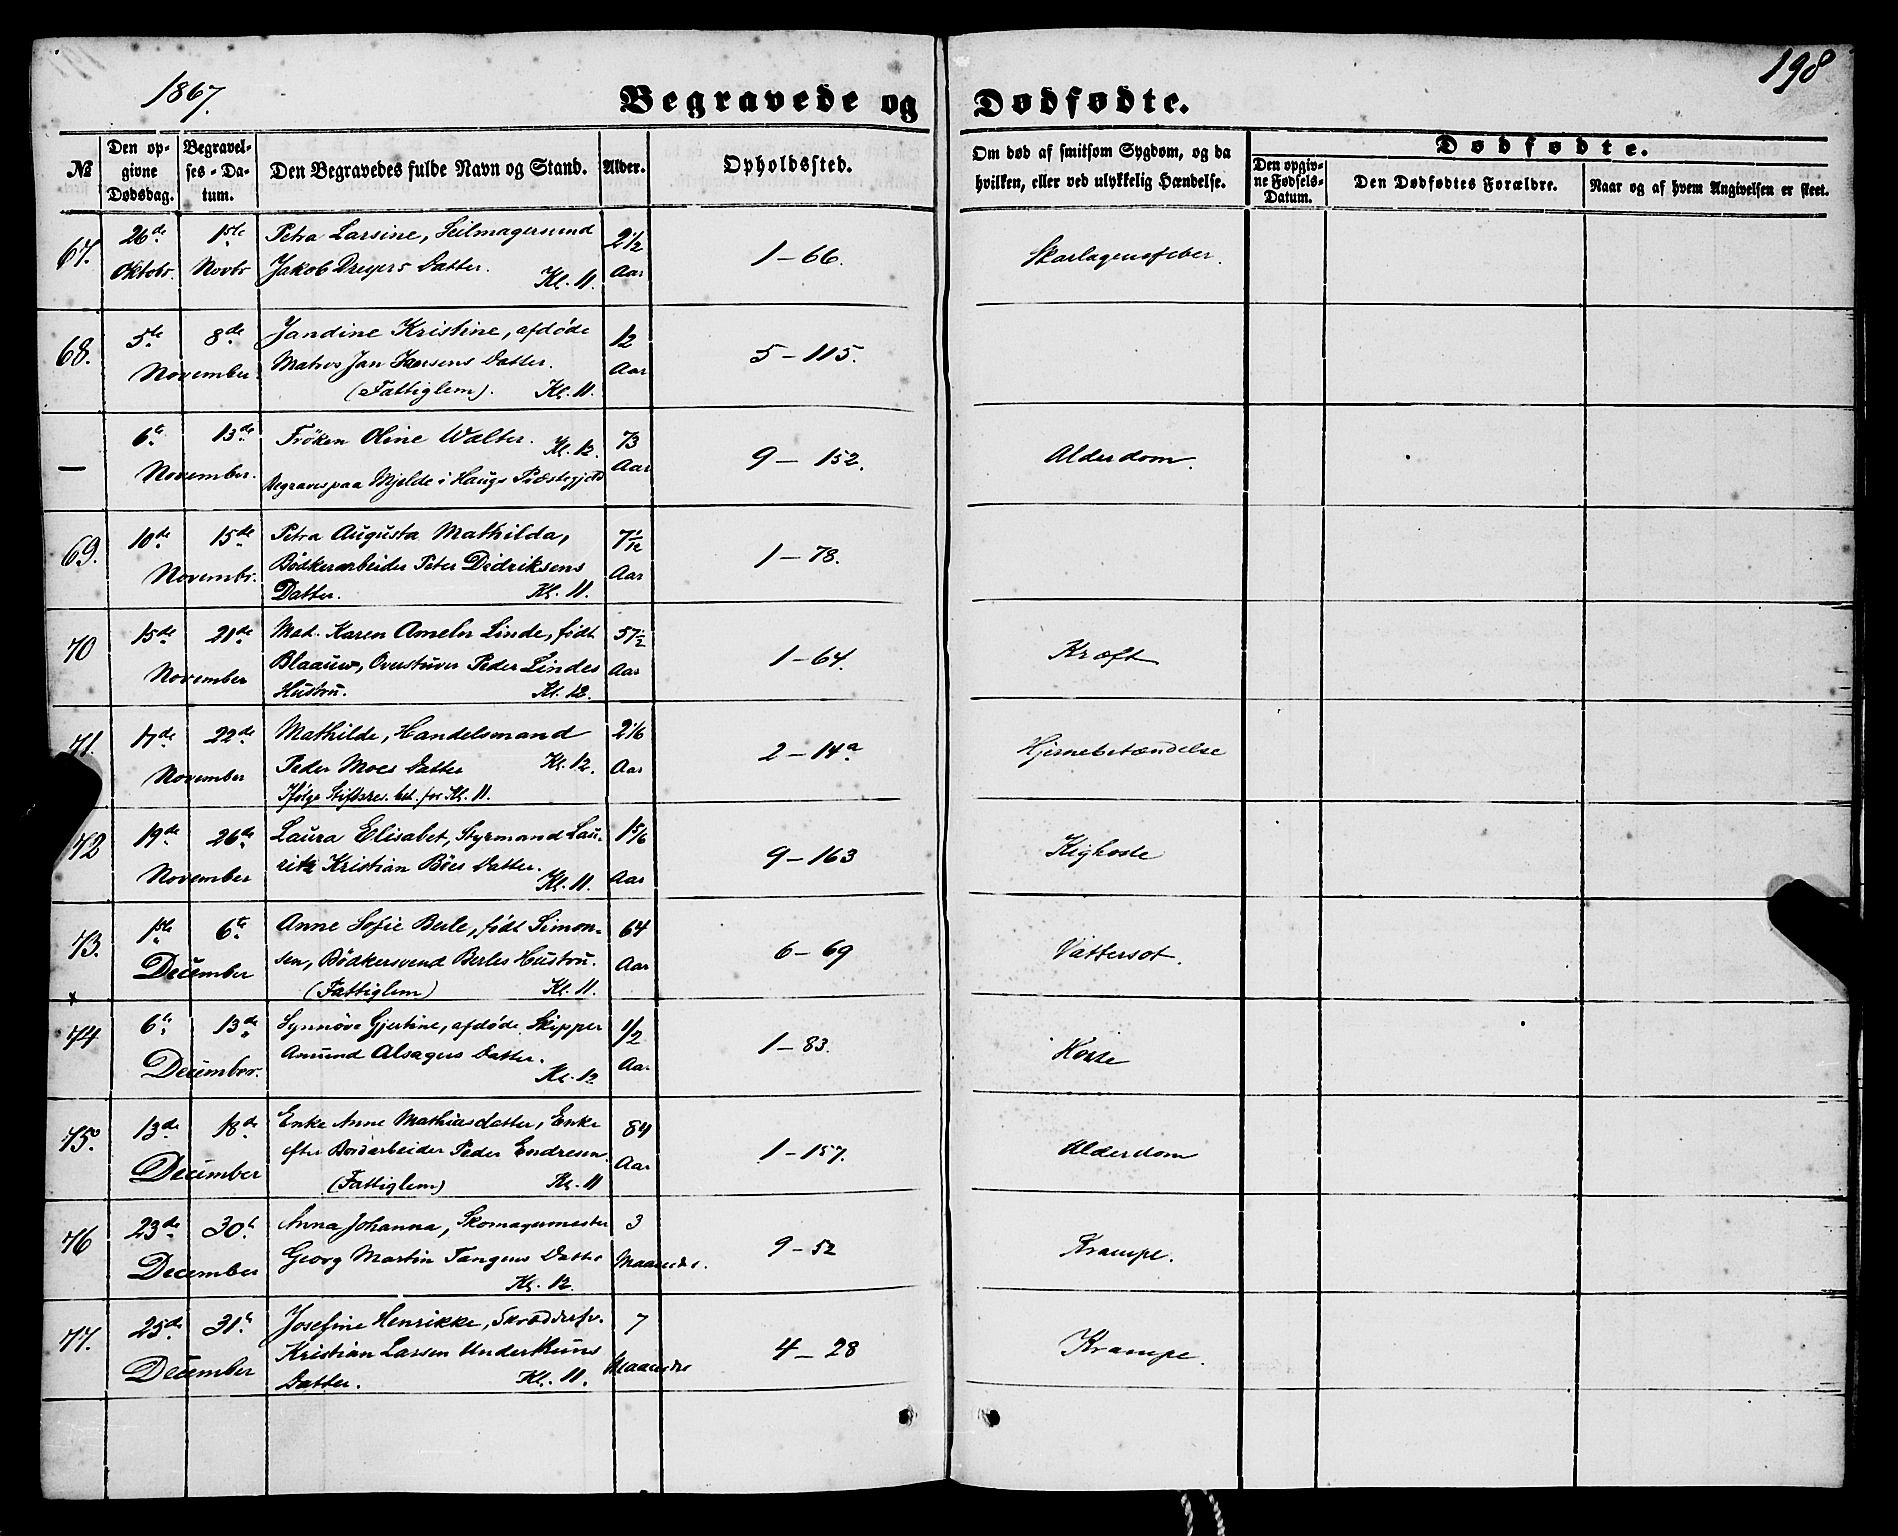 198
1867.
Begravede og Dødfødte.
№ Den opgivne Dødsdag. Begravelses-Datum. Den Begravedes fulde Navn og Stand. Alder. Opholdssted. Om død af smitsom Sygdom, og da hvilken, eller ved ulykkelig Hændelse. Dødfødte. Den opgivne Fødsels-Datum. Den Dødfødtes Forældre. Naar og af hvem Angivelsen er skeet.
67. 26de Oktobr. 1ste Novbr Petra Larsine, Seilmagersvend
Jakob Dreyers Datter. Kl. 11. 2 1/2 Aar 1-66. Skarlagensfeber.
68. 5te 8de November. Jandine Kristine, afdøde
Matros Jan Iversens Datter.
(Fattiglem). Kl. 11. 12 Aar 5-115.
— 6te 13de November. Frøken Oline Walter. Kl. 12.
Begraves paa Mjelde i Haugs Præstegjeld 73 Aar 9-152. Alderdom.
69. 10de 15de Novembr. Petra Augusta Mathilda,
Bødkerarbeider Peter Didriksens
Datter. Kl. 11. 7 1/12 Aar 1-78.
70 15de 21de November Mad. Karen Ameln Linde, født
Blaauw, Overstuver Peder Lindes
Hustru. Kl. 12. 57 1/2 Aar 1-64. Kræft
71. 17de 22de November Mathilde, Handelsmand
Peder Moes Datter Kl. 12.
Ifølge Stiftsres. bet. for Kl. 11. 2 1/6 Aar 2-14a Hjernebetændelse
72 19de 26de November Laura Elisabet, Styrmand Lau-
ritz Kristian Böes Datter. Kl. 11. 1 5/6 Aar 9-163 Kighoste
73. 1ste 6te December Anne Sofie Berle, født Simon-
sen, Bødkersvend Berles Hustru.
(Fattiglem) Kl. 11. 64 Aar 6-69 Vattersot.
74 6te 13de December. Synnöve Gjertine, afdøde Skipper
Amund Alsagers Datter.
Kl. 12 1/2 Aar 1-83. Hoste
75. 13de 18de December Enke Anne Mathiasdatter, Enke
efter Bordarbeider Peder Endresen.
(Fattiglem) Kl. 11 84 Aar 1-157. Alderdom
76 23de 30te December Anna Johanna, Skomagermester
Georg Martin Tangens Datter
Kl. 12. 3 Maaneder. 9-52 Krampe.
77. 25de 31te December Josefine Henrikke, Skræddersv.
Kristian Larsen Underthuns
Datter. Kl. 11. 7 Maaneder 4-28 Krampe.